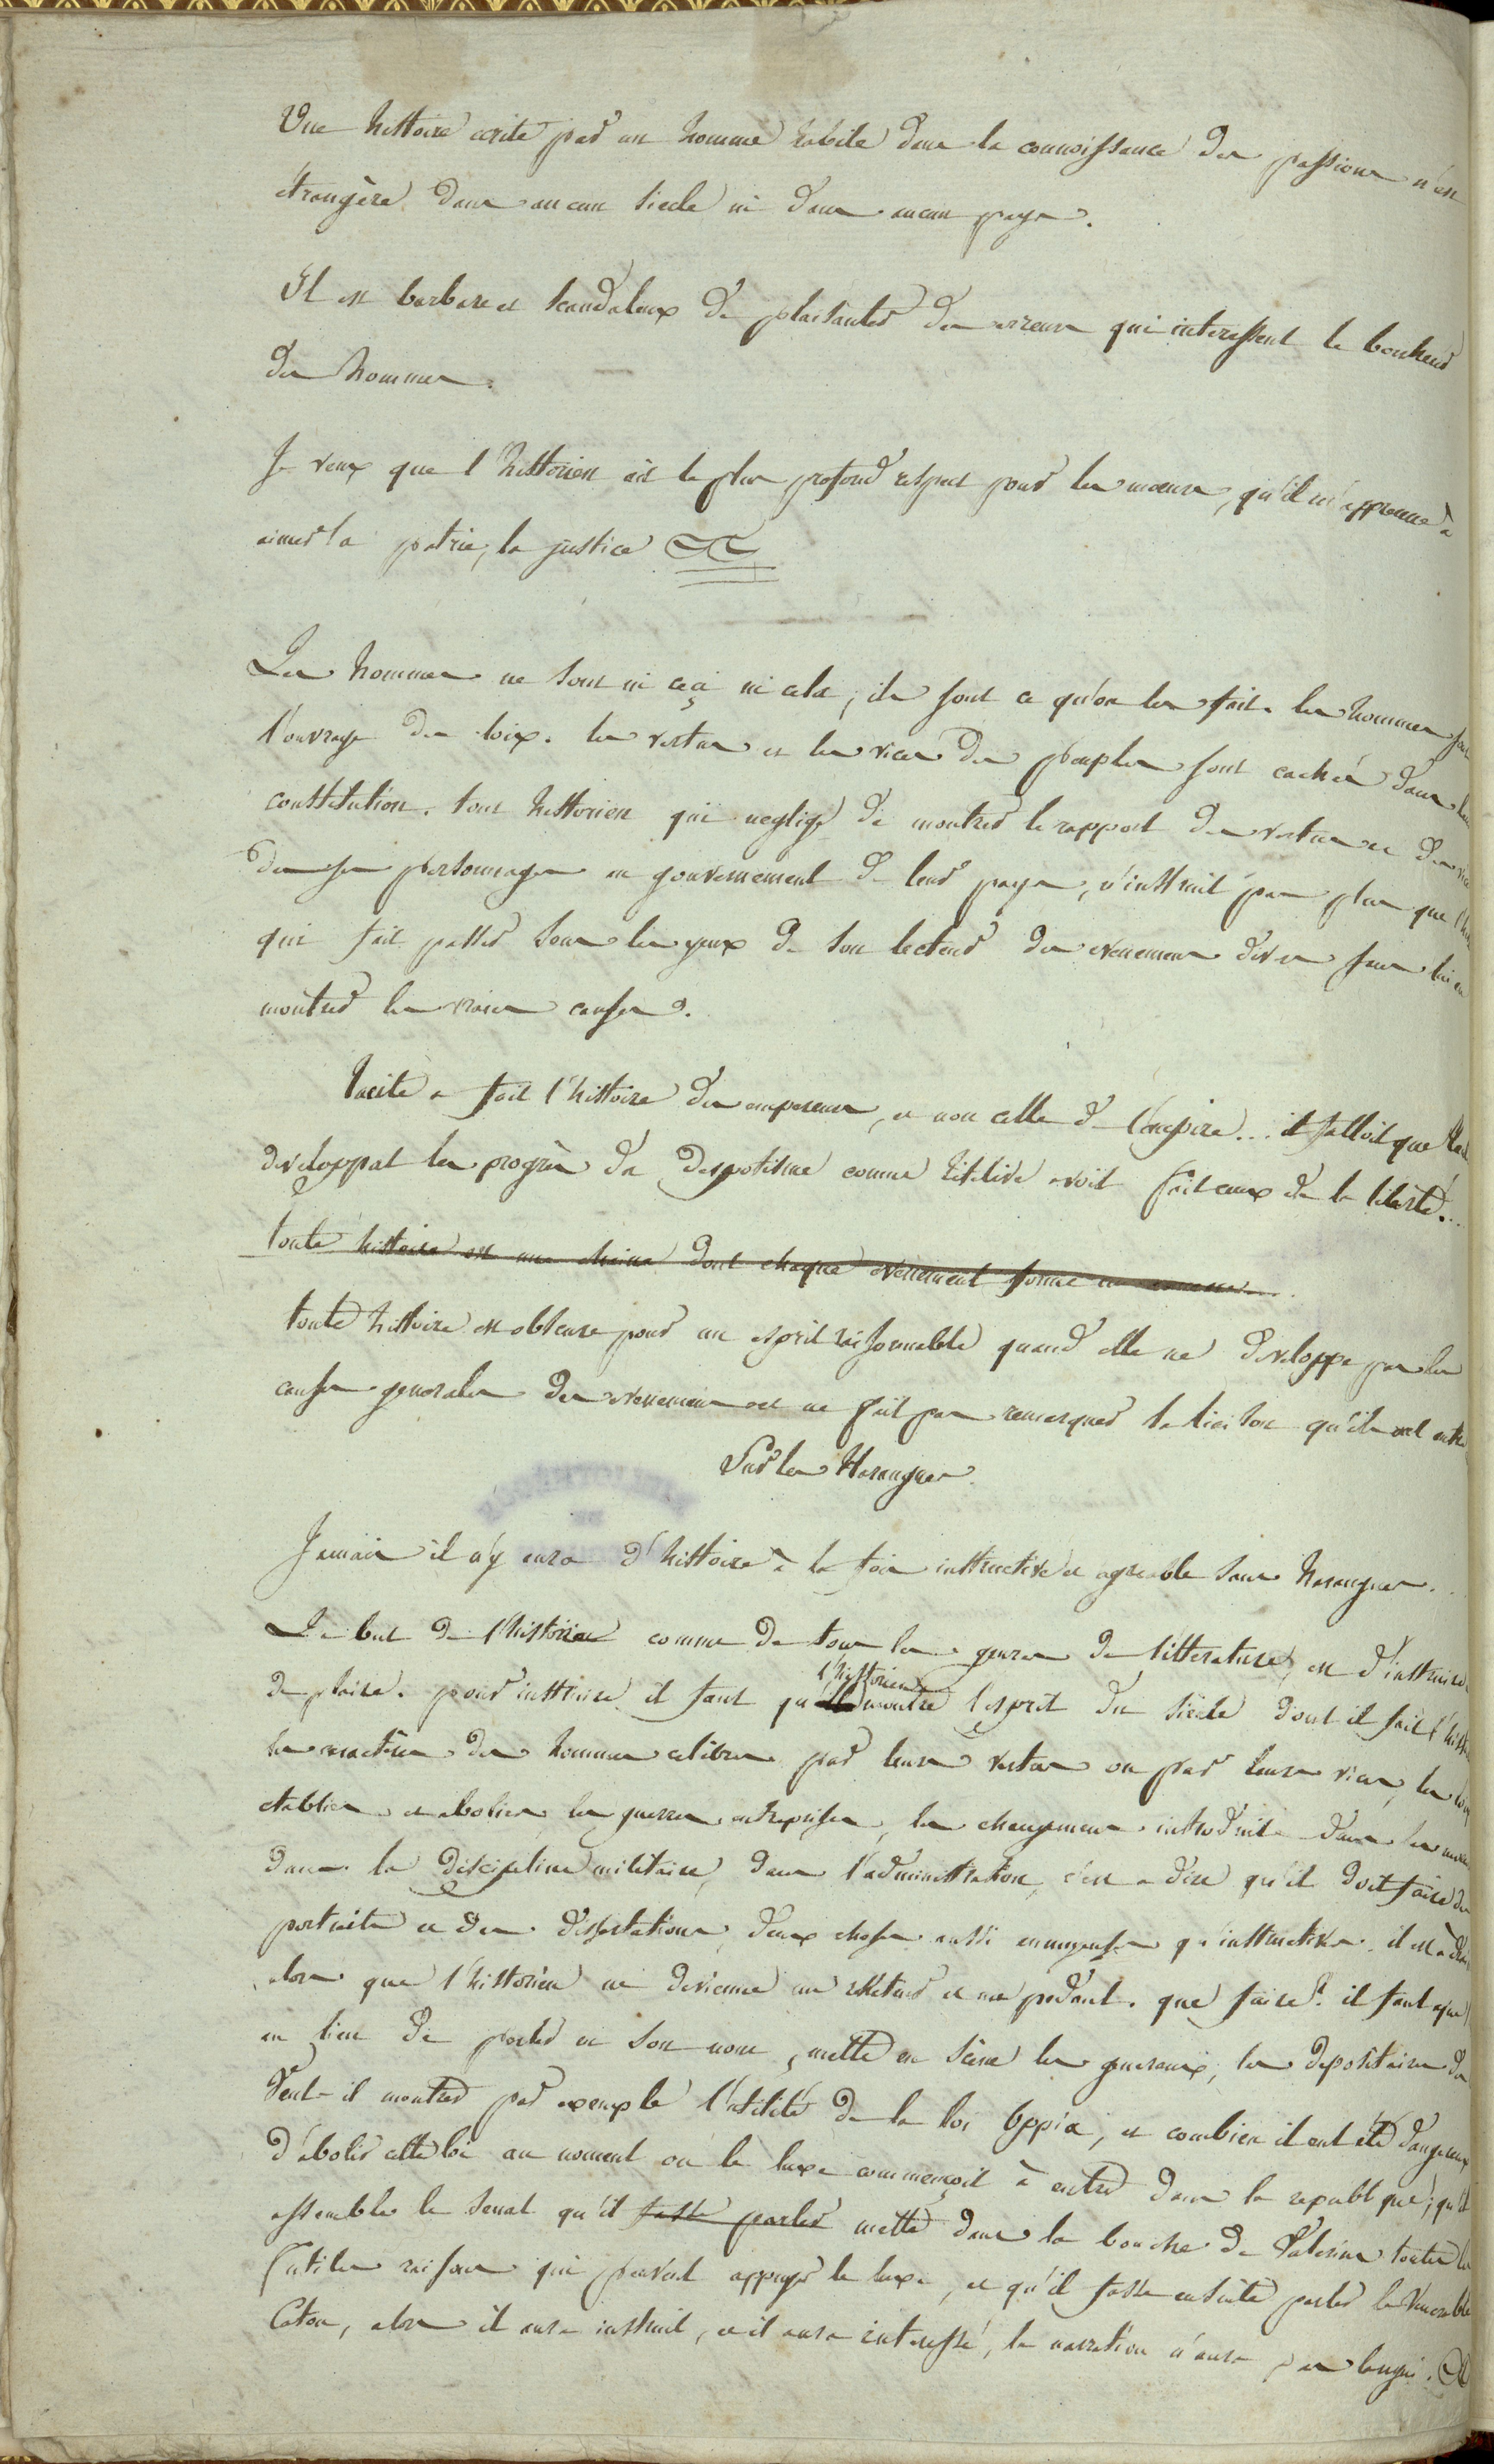 Une histoire ecrite par un homme habile dans la connoissance des passions n'est
étrangère dans aucun siecle ni dans aucun pays.
Il est barbare et scandaleux de plaisanter des erreurs qui interessent le bonheur
des hommes.
Je veux que l'historien ait le plus profond respect pour les moeurs, qu'il m'apprenne à
aimer la patrie, la justice &&
Les hommes ne sont ni ceci ni cela, ils sont ce qu'on les fait. les hommes sont
l'ouvrage des loix. les vertus et les vices des peuples sont cachés dans leur
constitution. tout historien qui neglige de montrer le rapport des vertus et des vices
de ses personnages au gouvernement de leur pays, n'instruit pas plus que
qui fait passer sous les yeux de son lecteur des evenemens divers sans lui en
montrer les vraies causes.
Tacite a fait l'histoire des empereurs, et non celle de l'empire... il falloit que
developpat les progrès du despotisme comme Titelive avoit fait ceux de la liberté...
toute histoire est une chaine dont chaque evenement forme un
toute histoire est obscure pour un esprit raisonnable quand elle ne developpe pas les
causes generales des evenemens et ne fait pas remarquer la liaison qu'ils ont entre
Sur les Harangues.
Jamais il n'y aura d'histoire à la fois instructive et agreable sans harangues..
Le but de l'histoire comme de tous les genres de litterature, est d'instruire
de plaire. pour instruire il faut que l'historien montre l'esprit du siècle dont il fait
les caractères des hommes celebres par leurs vertus ou par leurs vices, les loix
etablies et abolies, les guerres entreprises, les changemens introduits dans les moeurs
dans la discipline militaire, dans l'administration, c'est a dire qu'il doit faire des
portraits et des dissertations, deux choses aussi ennuyeuses qu'instructives. il est à
alors que l'historien ne devienne un rhéteur et un pedant. que faire? il faut que
au lieu de parler en son nom, mette en scène les generaux, les depositaires
Veut-il montrer par exemple l'utilité de la loi Oppia, et combien il eut été dangereux
d'abolir cette loi au moment ou le luxe commençoit à entrer dans la republique; qu'il
assemble le senat qu'il fasse parler mette dans la bouche de Valerius toutes les
futiles raisons qui peuvent appuyer le luxe, et qu'il fasse ensuite parler le venerable
Caton, alors il aura instruit, et il aura interessé, la narration n'aura pas langui.